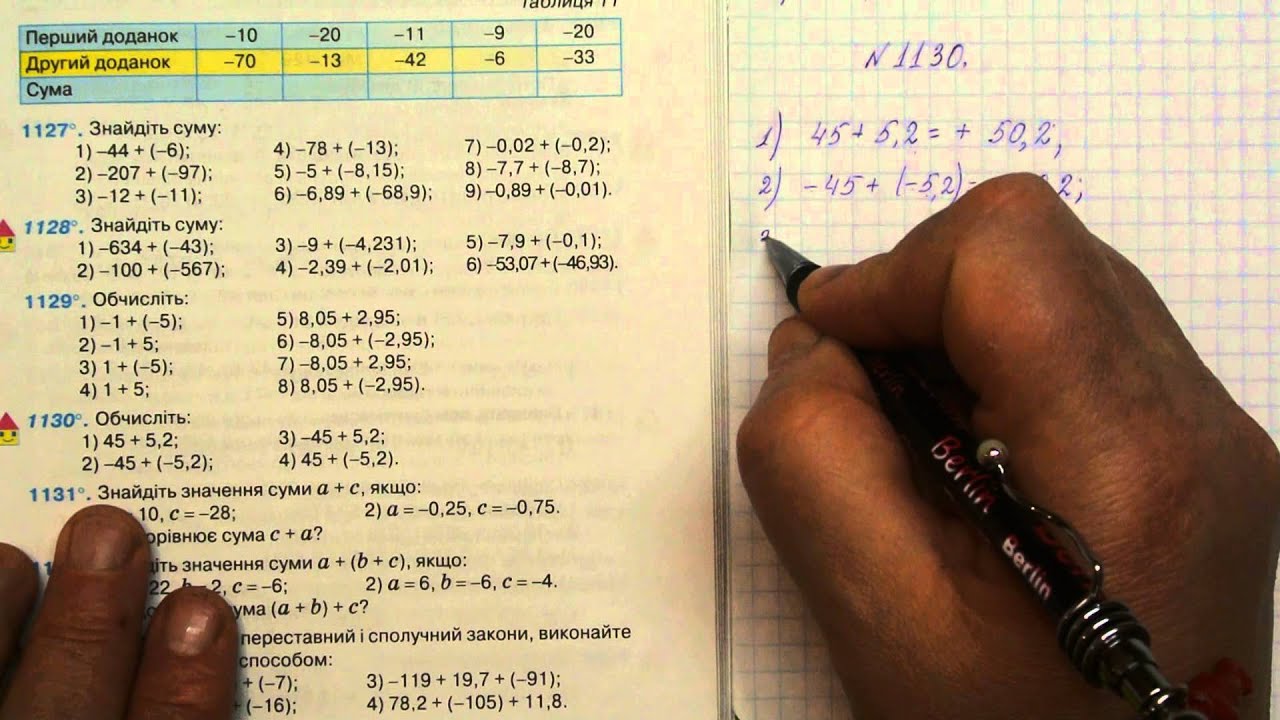 Таблиця 11
Перший доданок −10 −20 −11 −9 −20
Другий доданок −70 −13 −42 −6 −33
Сума
1127°. Знайдіть суму:
1) −44 + (−6); 4) −78 + (−13); 7) −0,02 + (−0,2);
2) −207 + (−97); 5) −5 + (−8,15); 8) −7,7 + (−8,7);
3) −12 + (−11); 6) −6,89 + (−68,9); 9) −0,89 + (−0,01).
1128°. Знайдіть суму:
1) −634 + (−43); 3) −9 + (−4,231); 5) −7,9 + (−0,1);
2) −100 + (−567); 4) −2,39 + (−2,01); 6) −53,07 + (−46,93).
1129°. Обчисліть:
1) −1 + (−5); 5) 8,05 + 2,95;
2) −1 + 5; 6) −8,05 + (−2,95);
3) 1 + (−5); 7) −8,05 + 2,95;
4) 1 + 5; 8) 8,05 + (−2,95).
1130°. Обчисліть:
1) 45 + 5,2; 3) −45 + 5,2;
2) −45 + (−5,2); 4) 45 + (−5,2).
1131°. Знайдіть значення суми a + c, якщо:
10, c = −28; 2) a = −0,25, c = −0,75.
сума c + a?
значення суми a + (b + c), якщо:
c = −6; 2) a = 6, b = −6, c = −4.
(a + b) + c?
переставний і сполучний закони, виконайте
способом:
+ (−7); 3) −119 + 19,7 + (−91);
+ (−16); 4) 78,2 + (−105) + 11,8.
N 1130.
1) 45 + 5,2 = + 50,2;
2) −45 + (−5,2) 2;
Berlin
Berlin